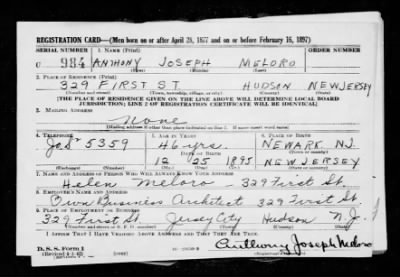 REGISTRATION CARD—(Men born on or after April 28, 1877 and on or before February 16, 1897)
SERIAL NUMBER 1. NAME (Print)
U 984 ANTHONY JOSEPH MELORO
(First) (Middle) (Last)
2. PLACE OF RESIDENCE (Print)
329 FIRST ST HUDSON NEW JERSEY
(Number and street) (Town, township, village, or city) (County) (State)
[THE PLACE OF RESIDENCE GIVEN ON THE LINE ABOVE WILL DETERMINE LOCAL BOARD
JURISDICTION; LINE 2 OF REGISTRATION CERTIFICATE WILL BE IDENTICAL]
3. MAILING ADDRESS
None
[Mailing address if other than place indicated on line 2. If same insert word same]
4. TELEPHONE 5. AGE IN YEARS 6. PLACE OF BIRTH
46 yrs. NEWARK N.J.
5359 DATE OF BIRTH
12 25 1895 NEW JERSEY
(Exchange) (Number) (Mo.) (Day) (Yr.) (State or country)
7. NAME AND ADDRESS OF PERSON WHO WILL ALWAYS KNOW YOUR ADDRESS
Helen Meloro - 329 First St.
8. EMPLOYER'S NAME AND ADDRESS
Own Business Architect 329 First St.
9. PLACE OF EMPLOYMENT OR BUSINESS
329 First St Jersey City Hudson N.J.
(Number and street or R. F. D. number) (Town) (County) (State)
I AFFIRM THAT I HAVE VERIFIED ABOVE ANSWERS AND THAT THEY ARE TRUE.
D. S. S. Form 1
Anthony Joseph Meloro